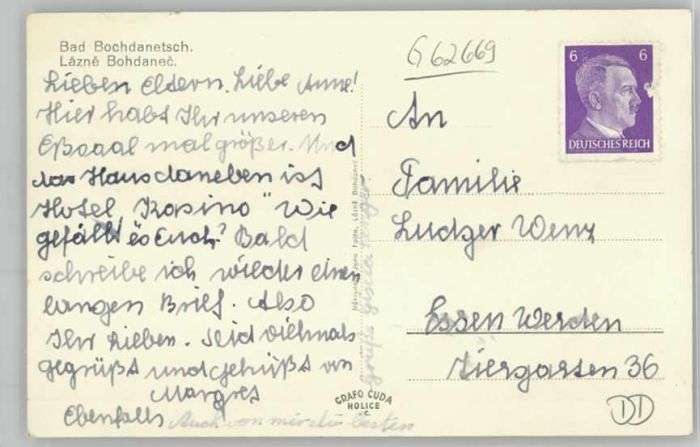 Bad Bochdanetsch.
Lázně Bohdaneč.
Lieben Eldern. Liebe Anne!
Hier habt Ihr unseren
Eßsaal mal größer. Und
das Haus daneben ist
Hotel "Kasino" Wie
gefällt es Euch? Bald
schreibe ich wieder einen
langen Brief. Also
Ihr Lieben. Seid vielmals
gegrüßt und geküßt von
Margret
Ebenfalls
Auch von mir die besten
Grüße Gisela
Lázně Bohdaneč
GRAFO ČUDA
HOLICE
G 62669
6 6
DEUTSCHES REICH
An
Familie
Ludger Wenz
Essen Werden
Tiergarten 36